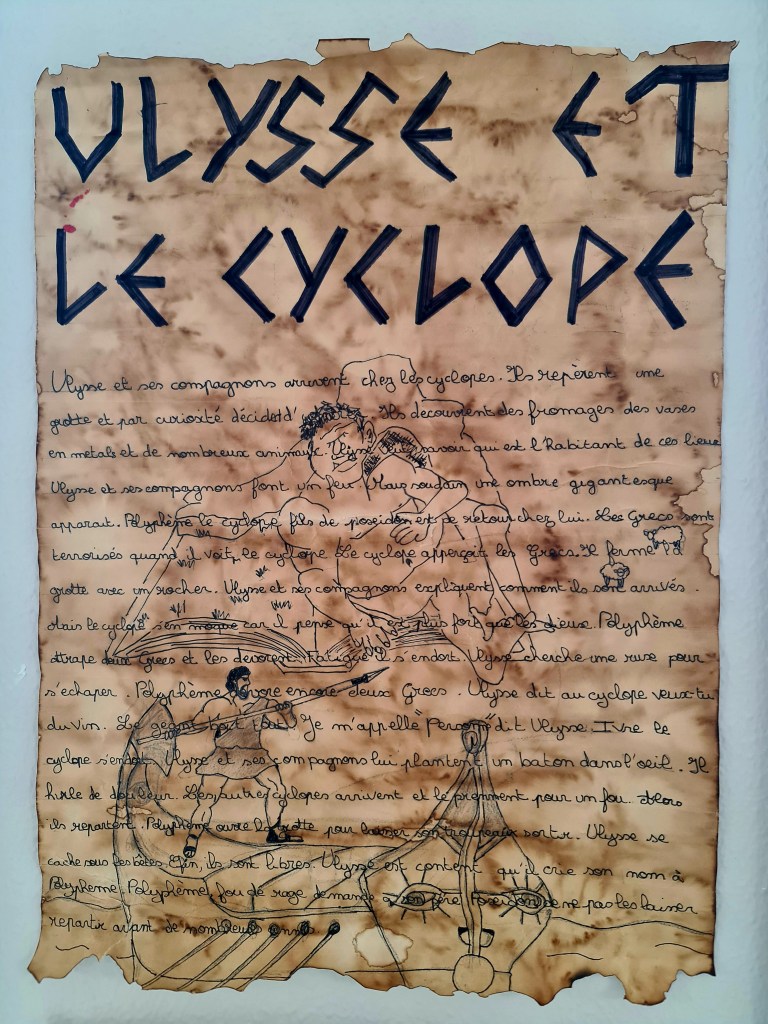 ULYSSE ET
LE CYCLOPE
Ulysse et ses compagnons arrivent chez les cyclopes. Ils repèrent une
grotte et par curiosité décident d' Ils decouvrent des fromages des vases
en metals et de nombreux animaux. Ulysse veut savoir qui est l'habitant de ces lieux
Ulysse et ses compagnons font un feu. Mais soudain une ombre gigantesque
apparait. Polyphème le cyclope fils de poseidon est de retour chez lui. Les Grecs sont
terrorisés quand il voit le cyclope. Le cyclope apperçoit les Grecs. Il ferme la
grotte avec un rocher. Ulysse et ses compagnons expliquent comment ils sont arrivés.
Mais le cyclope s'en moque car il pense qu'il est plus fort que les dieux. Polyphème
attrape deux Grecs et les devorent. Fatigué il s'endort. Ulysse cherche une ruse pour
s'echaper. Polyphème devore encore deux Grecs. Ulysse dit au cyclope veux-tu
du vin. Le geant boit tout. Je m'appelle "Personne" dit Ulysse. Ivre le
cyclope s'endort. Ulysse et ses compagnons lui plantent un baton dans l'oeil. Il
hurle de douleur. Les autres cyclopes arrivent et le prennent pour un fou. Alors
ils repartent. Polyphème ouvre la grotte pour laisser son troupeau sortir. Ulysse se
cache sous les bêtes. Efin, ils sont libres. Ulysse est content qu'il crie son nom à
Polypheme. Polyphème, fou de rage demande a son père Poseidon de ne pas les laisser
repartir avant de nombreuses années.